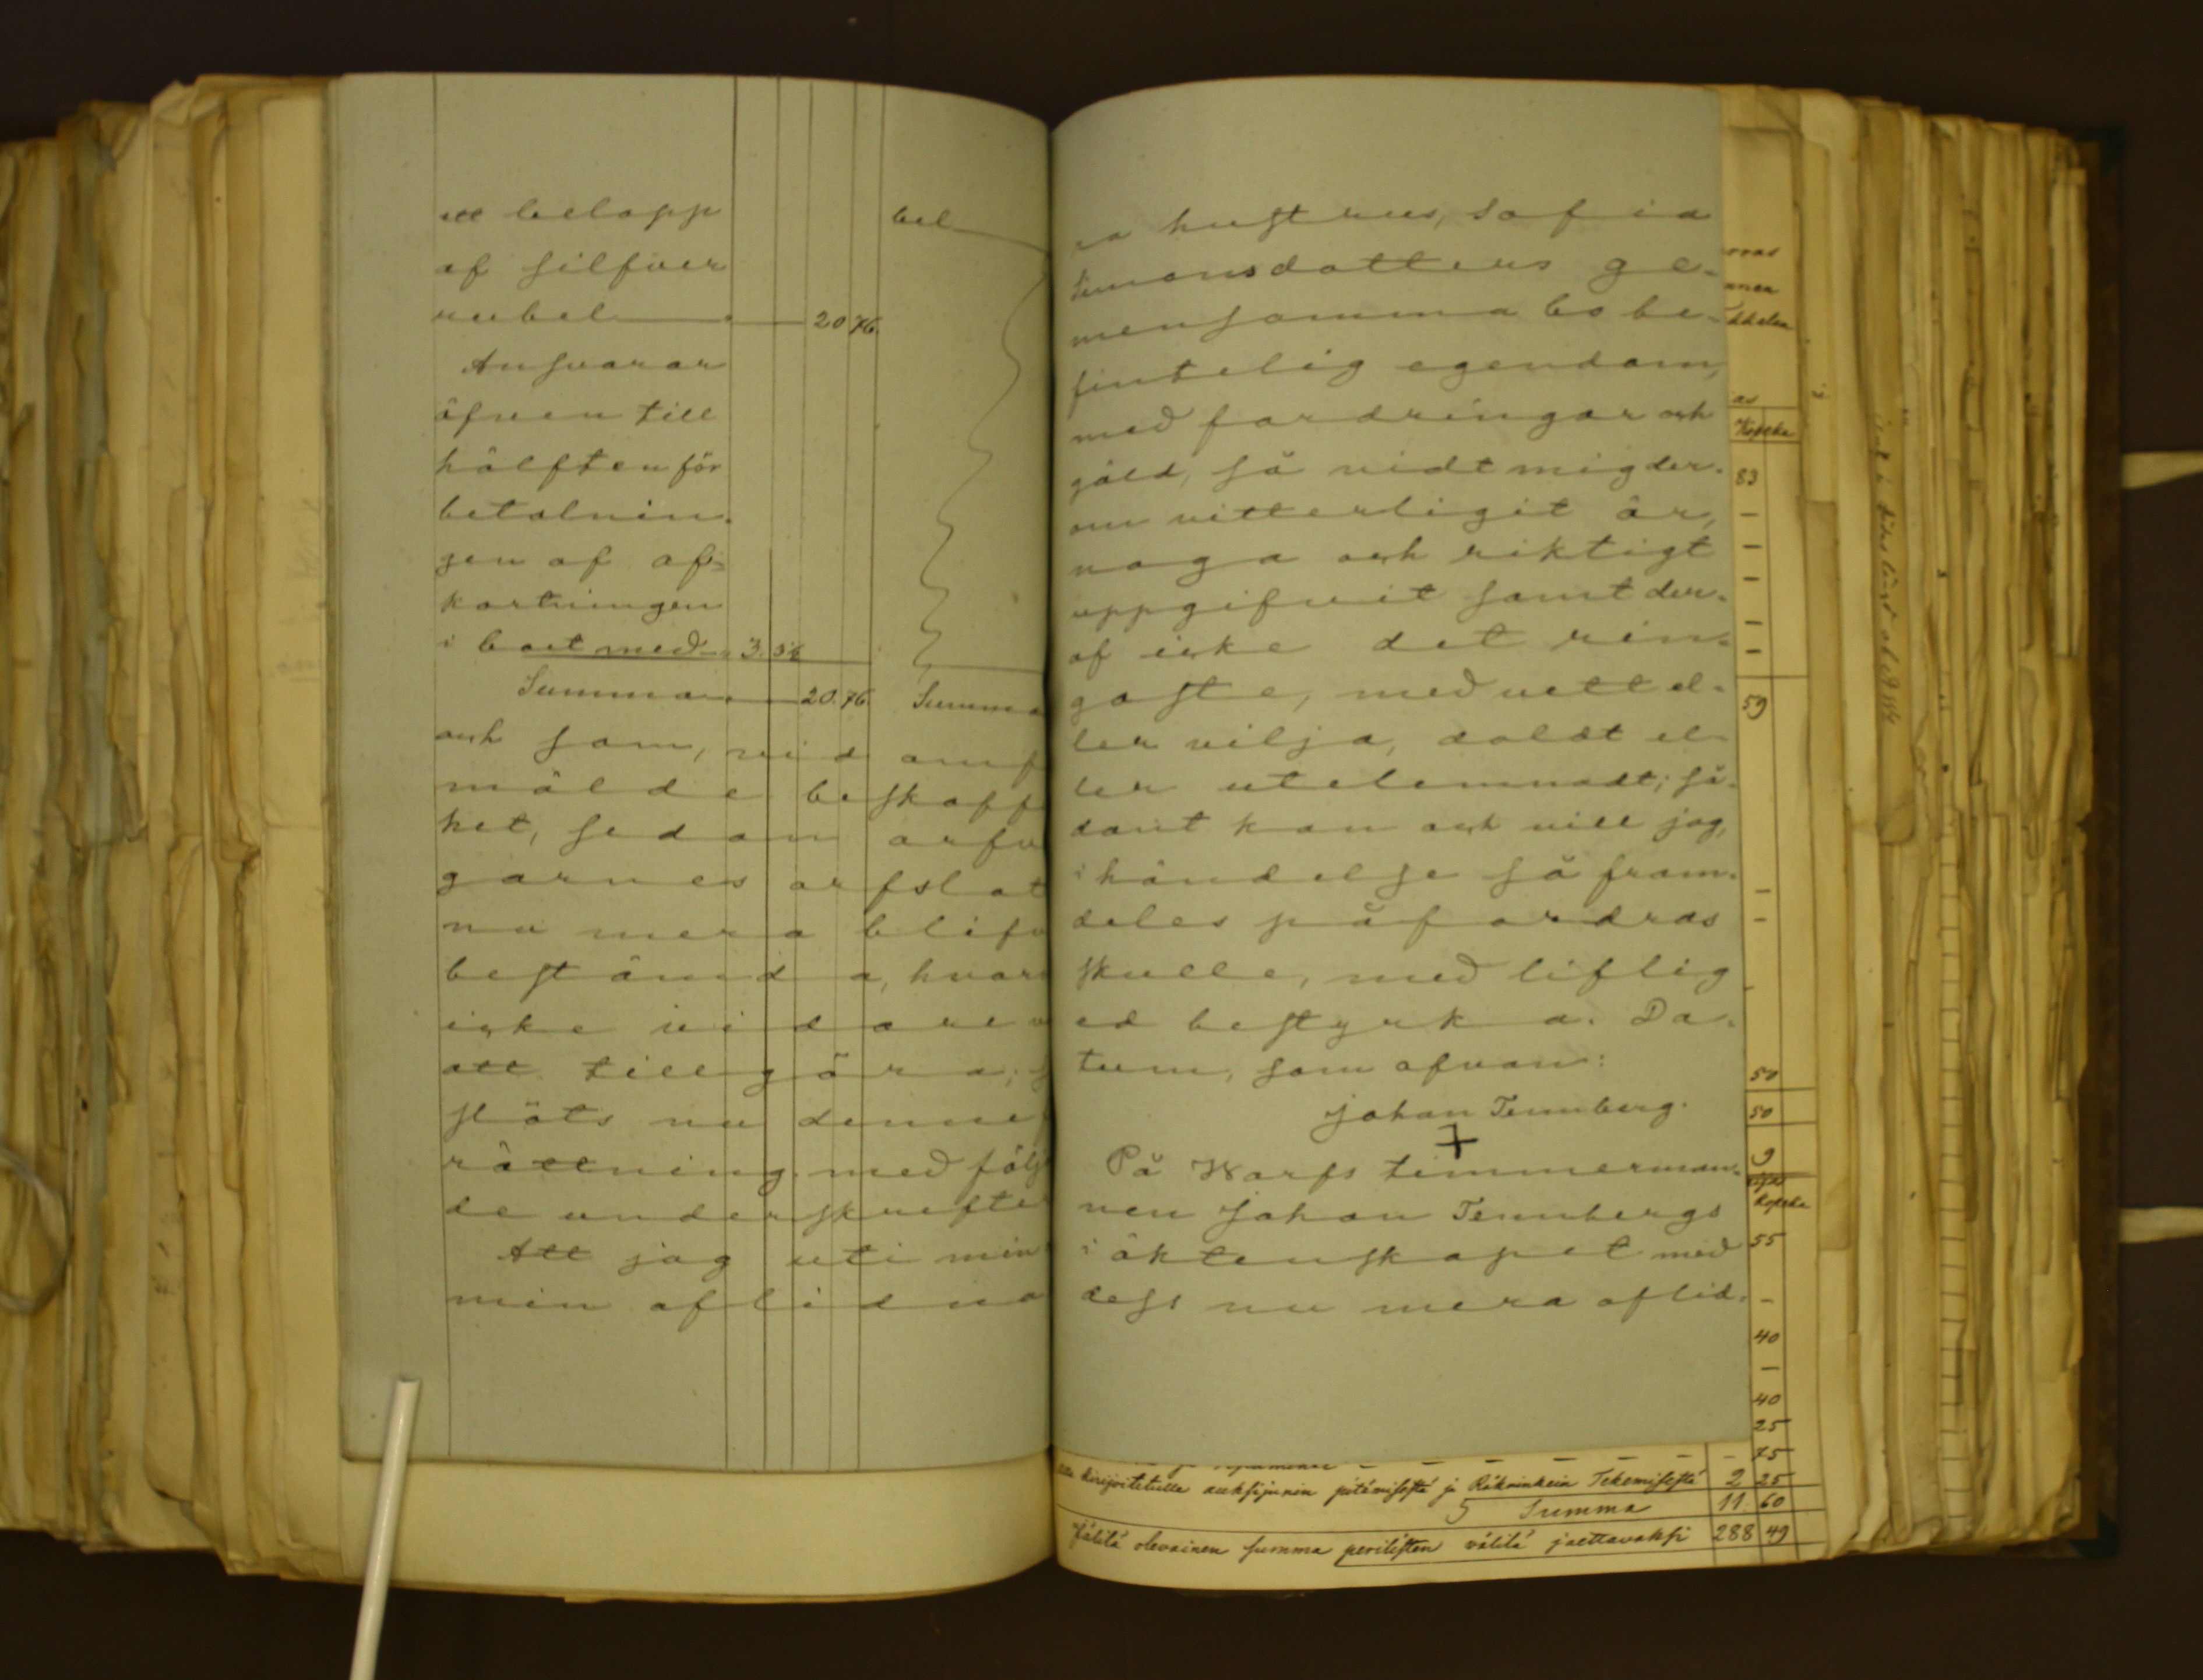 ett belopp
af silfver
rubel 20 76.
Ansvarar
äfven till
hälften för
betalnin-
gen af af-
kortningen
i boet med 3. 3½
Summa 20. 76.
bel
Summa
och som, vid
mälde beskaff
het, sedan arfv
garnes arfslot
nu mera blifv
bestämda, hvar
icke vidare
att tillgöra;
slöts nu denne
rättning med följ
de underskrifte
Att jag uti min
min aflidna
ra hustrus, Sofia
Simonsdotters ge-
mensamma bo be-
fintelig egendom,
med fordringar och
gäld, så vidt mig der-
om vitterligit är,
noga och riktigt
uppgifvit samt der-
af icke det rin-
gaste, med vett el-
ler vilja, doldt el-
ler utelemnadt; så-
dant kan och vill jag,
i händelse så fram-
deles påfordras
skulle, med liflig
ed bestyrka. Da-
tum, som ofvan:
Johan Tennberg.
På Warfs timmerman-
nen Johan Tennbergs
i äktenskapet med
dess nu mera aflid-
Kopeka
83
59
50
50
9
Kopeka
55
40
40
25
75
kirjoitetulla auksjunin pitämisestä ja Räkninkein Tekemisestä 2 25
Summa 11. 60
Jälilä olevainen summa perilisten välilä jaettavaksi 288 49